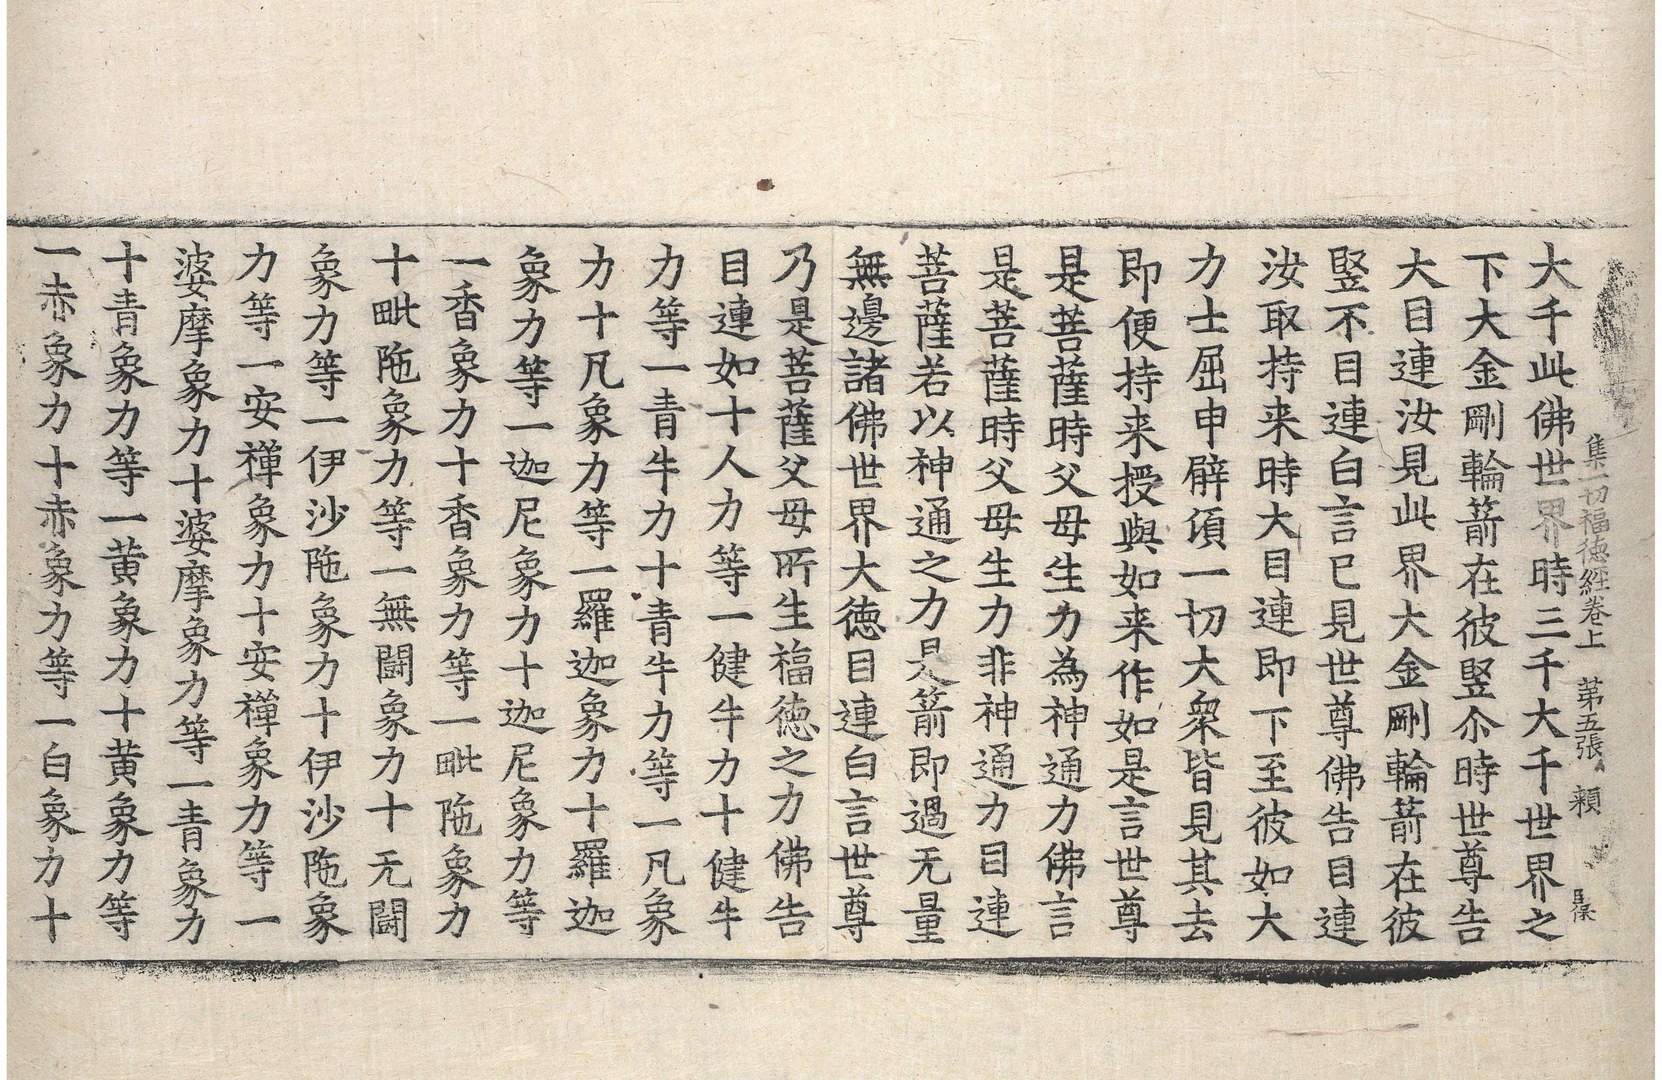 集一切福徳經卷上　第五張　頼
大千此佛世界時三千大千世界之
下大金剛輪箭在彼竪尒時世尊告
大目連汝見此界大金剛輪箭在彼
竪不目連白言已見世尊佛告目連
汝取持来時大目連即下至彼如大
力士屈申臂頃一切大衆皆見其去
即便持来授與如来作如是言世尊
是菩薩時父母生力為神通力佛言
是菩薩時父母生力非神通力目連
菩薩若以神通之力是箭即過无量
無邊諸佛世界大徳目連白言世尊
乃是菩薩父母所生福徳之力佛告
目連如十人力等一健牛力十健牛
力等一青牛力十青牛力等一凡象
力十凡象力等一羅迦象力十羅迦
象力等一迦尼象力十迦尼象力等
一香象力十香象力等一毗陁象力
十毗陁象力等一無闘象力十无闘
象力等一伊沙陁象力十伊沙陁象
力等一安禪象力十安禪象力等一
婆摩象力十婆摩象力等一青象力
十青象力等一黄象力十黄象力等
一赤象力十赤象力等一白象力十